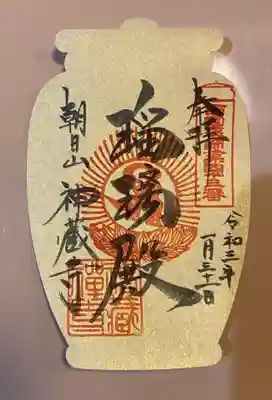 奉拝
令和三年
一月三十一日
瑠璃殿
朝日山 神蔵寺